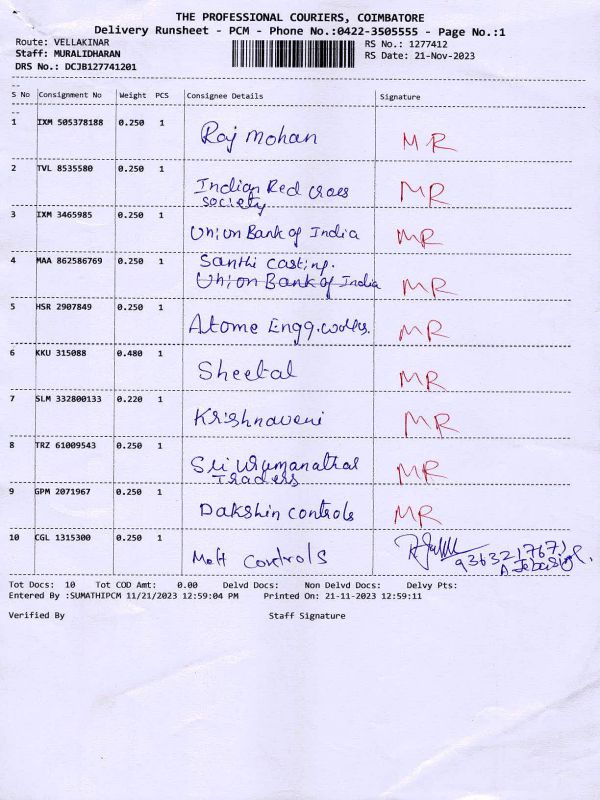 THE PROFESSIONAL COURIERS, COIMBATORE
Delivery Runsheet - PCM - Phone No.:0422-3505555 - Page No.:1
Route: VELLAKINAR RS No.: 1277412
Staff: MURALIDHARAN RS Date: 21-Nov-2023
DRS No.: DCJB127741201
S No Consignment No Weight PCS Consignee Details Signature
1 IXM 505378188 0.250 1 Raj mohan MR
2 TVL 8535580 0.250 1 Indian Red cross MR
society
3 IXM 3465985 0.250 1 Union Bank of India MR
Santhi casting.
4 MAA 862586769 0.250 1 Union Bank of India MR
5 HSR 2907849 0.250 1 Atome Engg. MR
6 KKU 315088 0.480 1 Sheetal MR
7 SLM 332800133 0.220 1 Krishnaveni MR
8 TRZ 61009543 0.250 1 Sri MR
Traders
9 GPM 2071967 0.250 1 Dakshin controls MR
10 CGL 1315300 0.250 1 Melt controls
A Jebasigl.
Tot Docs: 10 Tot COD Amt: 0.00 Delvd Docs: Non Delvd Docs: Delvy Pts:
Entered By :SUMATHIPCM 11/21/2023 12:59:04 PM Printed On: 21-11-2023 12:59:11
Verified By Staff Signature